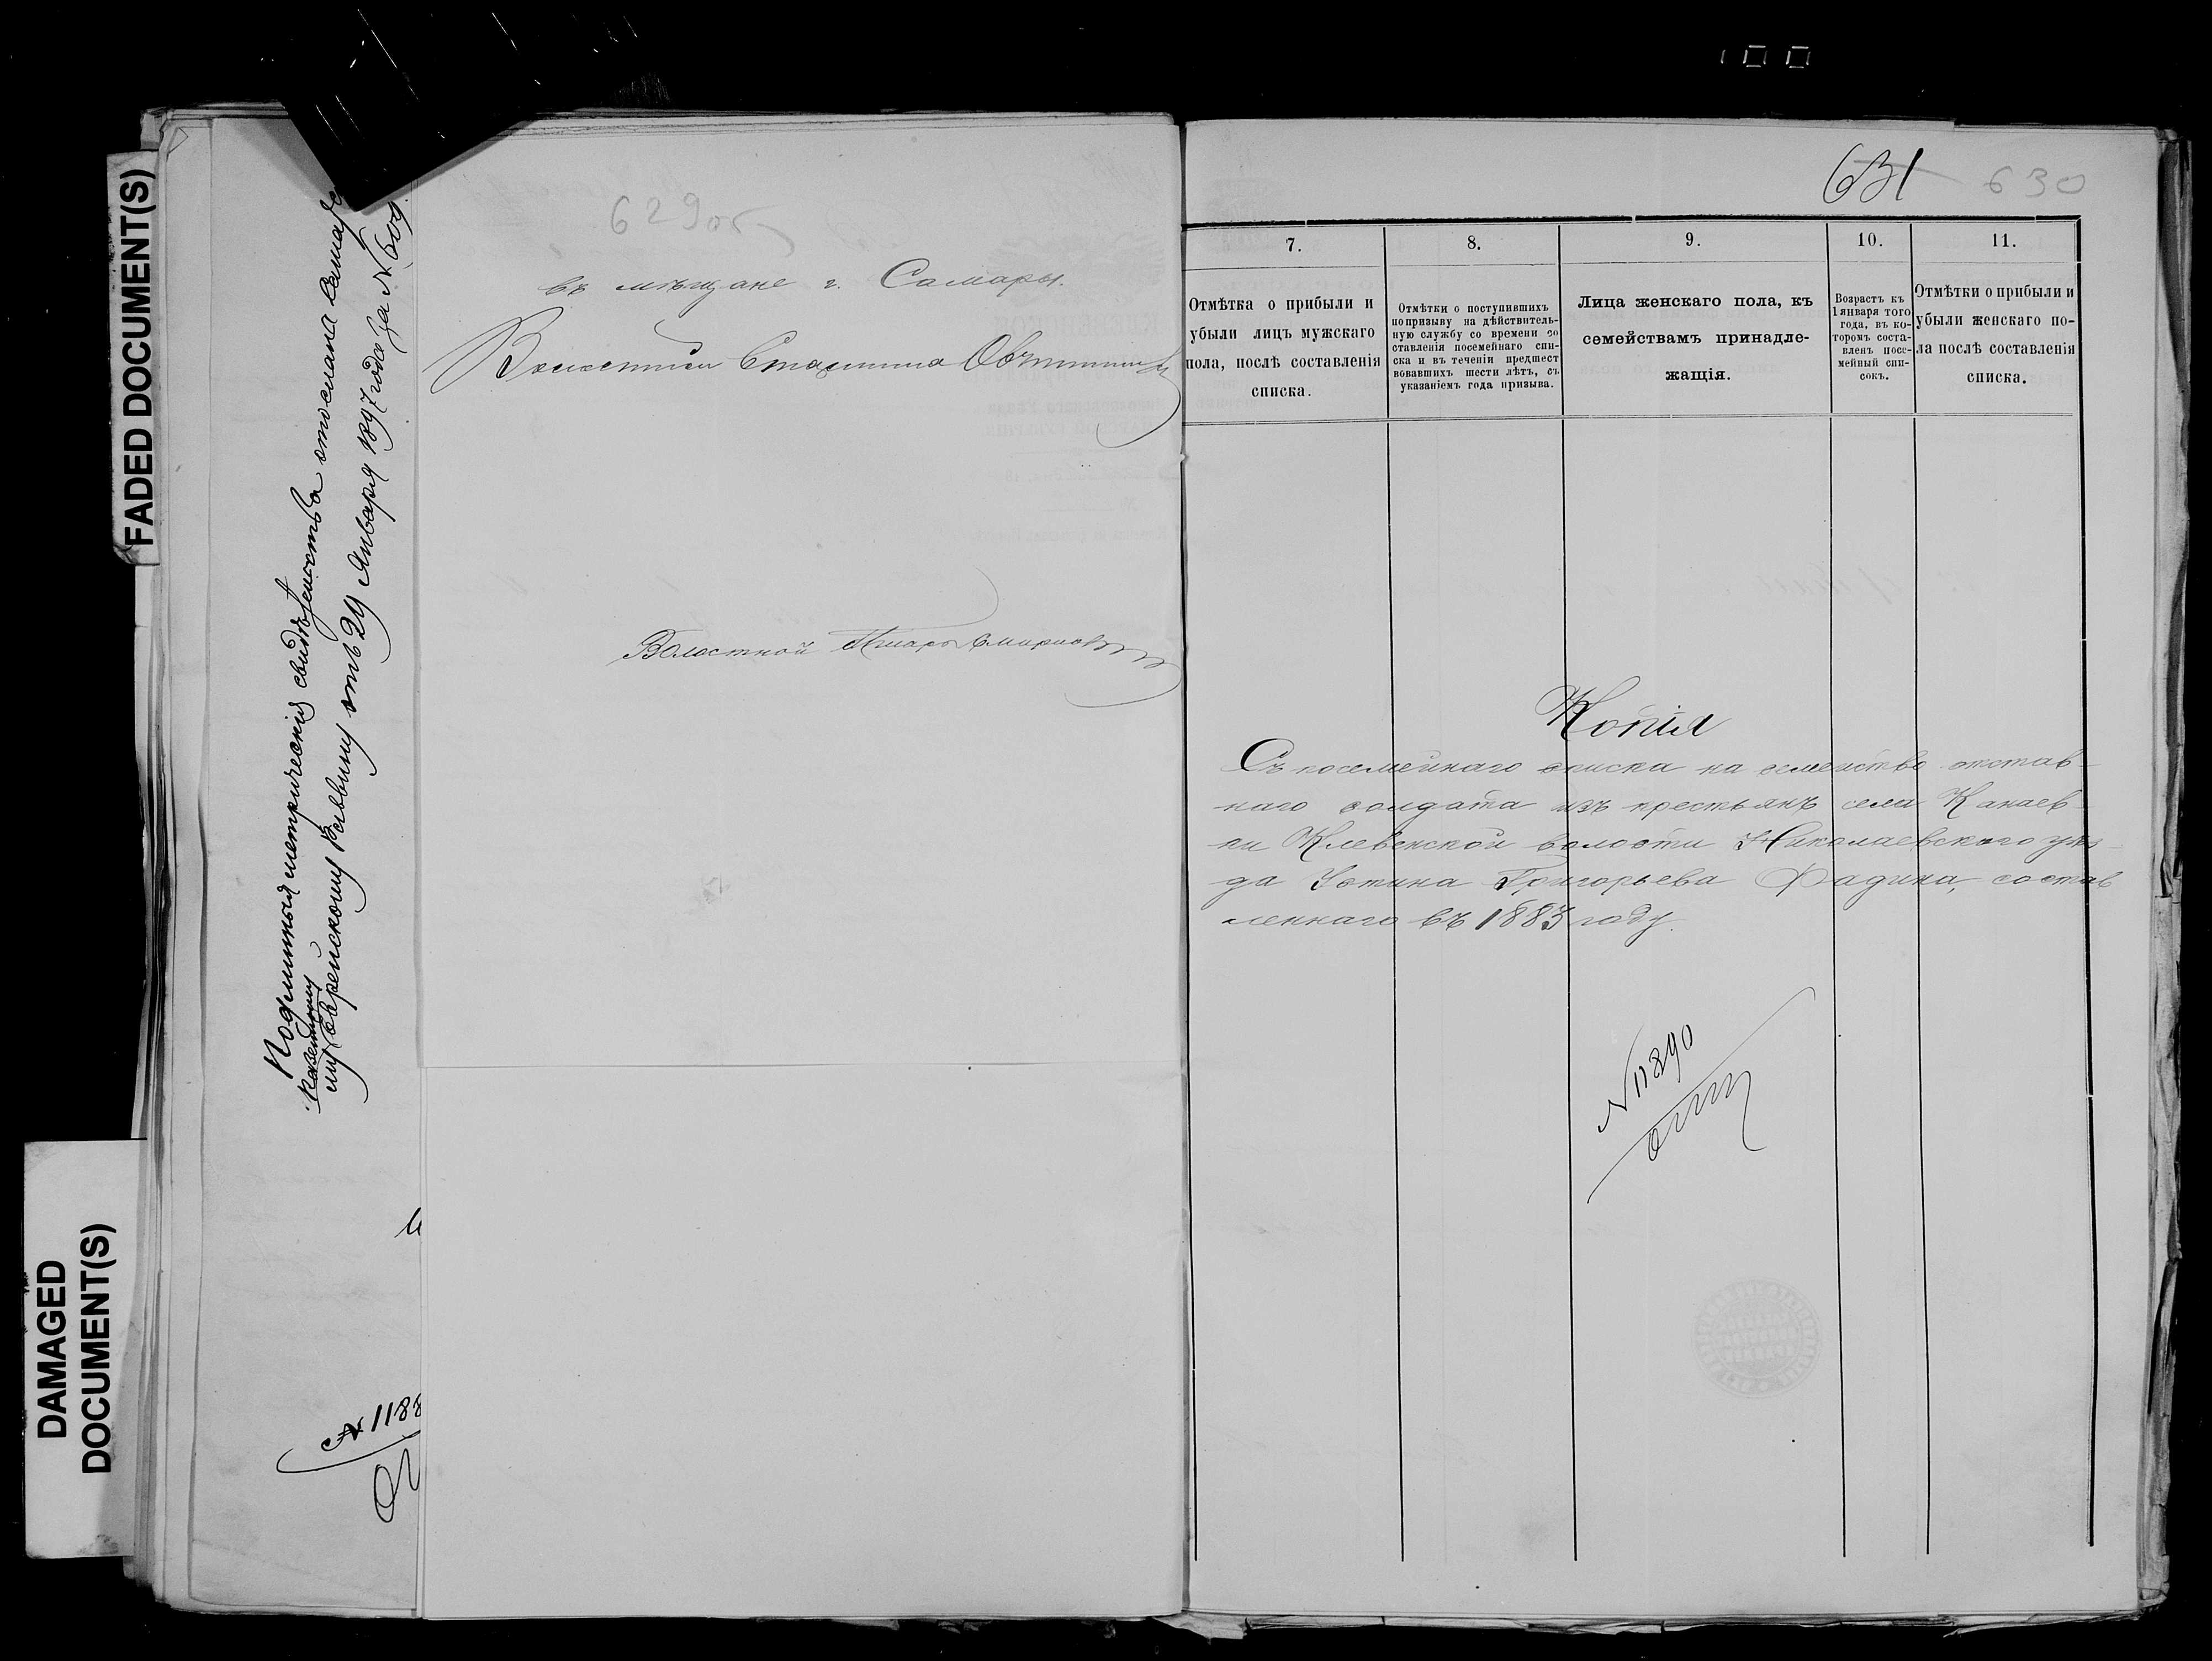 FADED DOCUMENT(S)
DAMAGED
DOCUMENT(S)
Подлинныя метрическия свидетельства отосланы Самарско
казенному
му Еврейскому Раввину отъ 29 Января 1897 года за № 609.
№ 1188
629 об
въ мещане г. Самары.
Волостной Старшина
Волостной Писарь Смирнов
100
631 630
7.
8.
9.
10.
11.
Отмѣтка о прибыли и
убыли лицъ мужскаго
пола, послѣ составленія
списка.
Отмѣтки о поступившихъ
по призыву на дѣйствитель-
ную службу со времени со
ставленія посемейнаго спи-
ска и въ теченіи предшест
вовавшихъ шести лѣтъ, съ
указаніемъ года призыва.
Лица женскаго пола, къ
семействамъ принадле-
жащія.
Возрастъ къ
1 января того
года, въ ко-
торомъ соста-
вленъ посе-
мейный спи-
сокъ.
Отмѣтки о прибыли и
убыли женскаго по-
ла послѣ составленія
списка.
Копія
Съ посемейнаго списка на семейство отстав-
наго солдата изъ крестьянъ села Канаев-
ки Клевенской волости Николаевскаго уѣз-
да Устина Григорьева Фадина, состав
леннаго въ 1883 году.
№ 11890